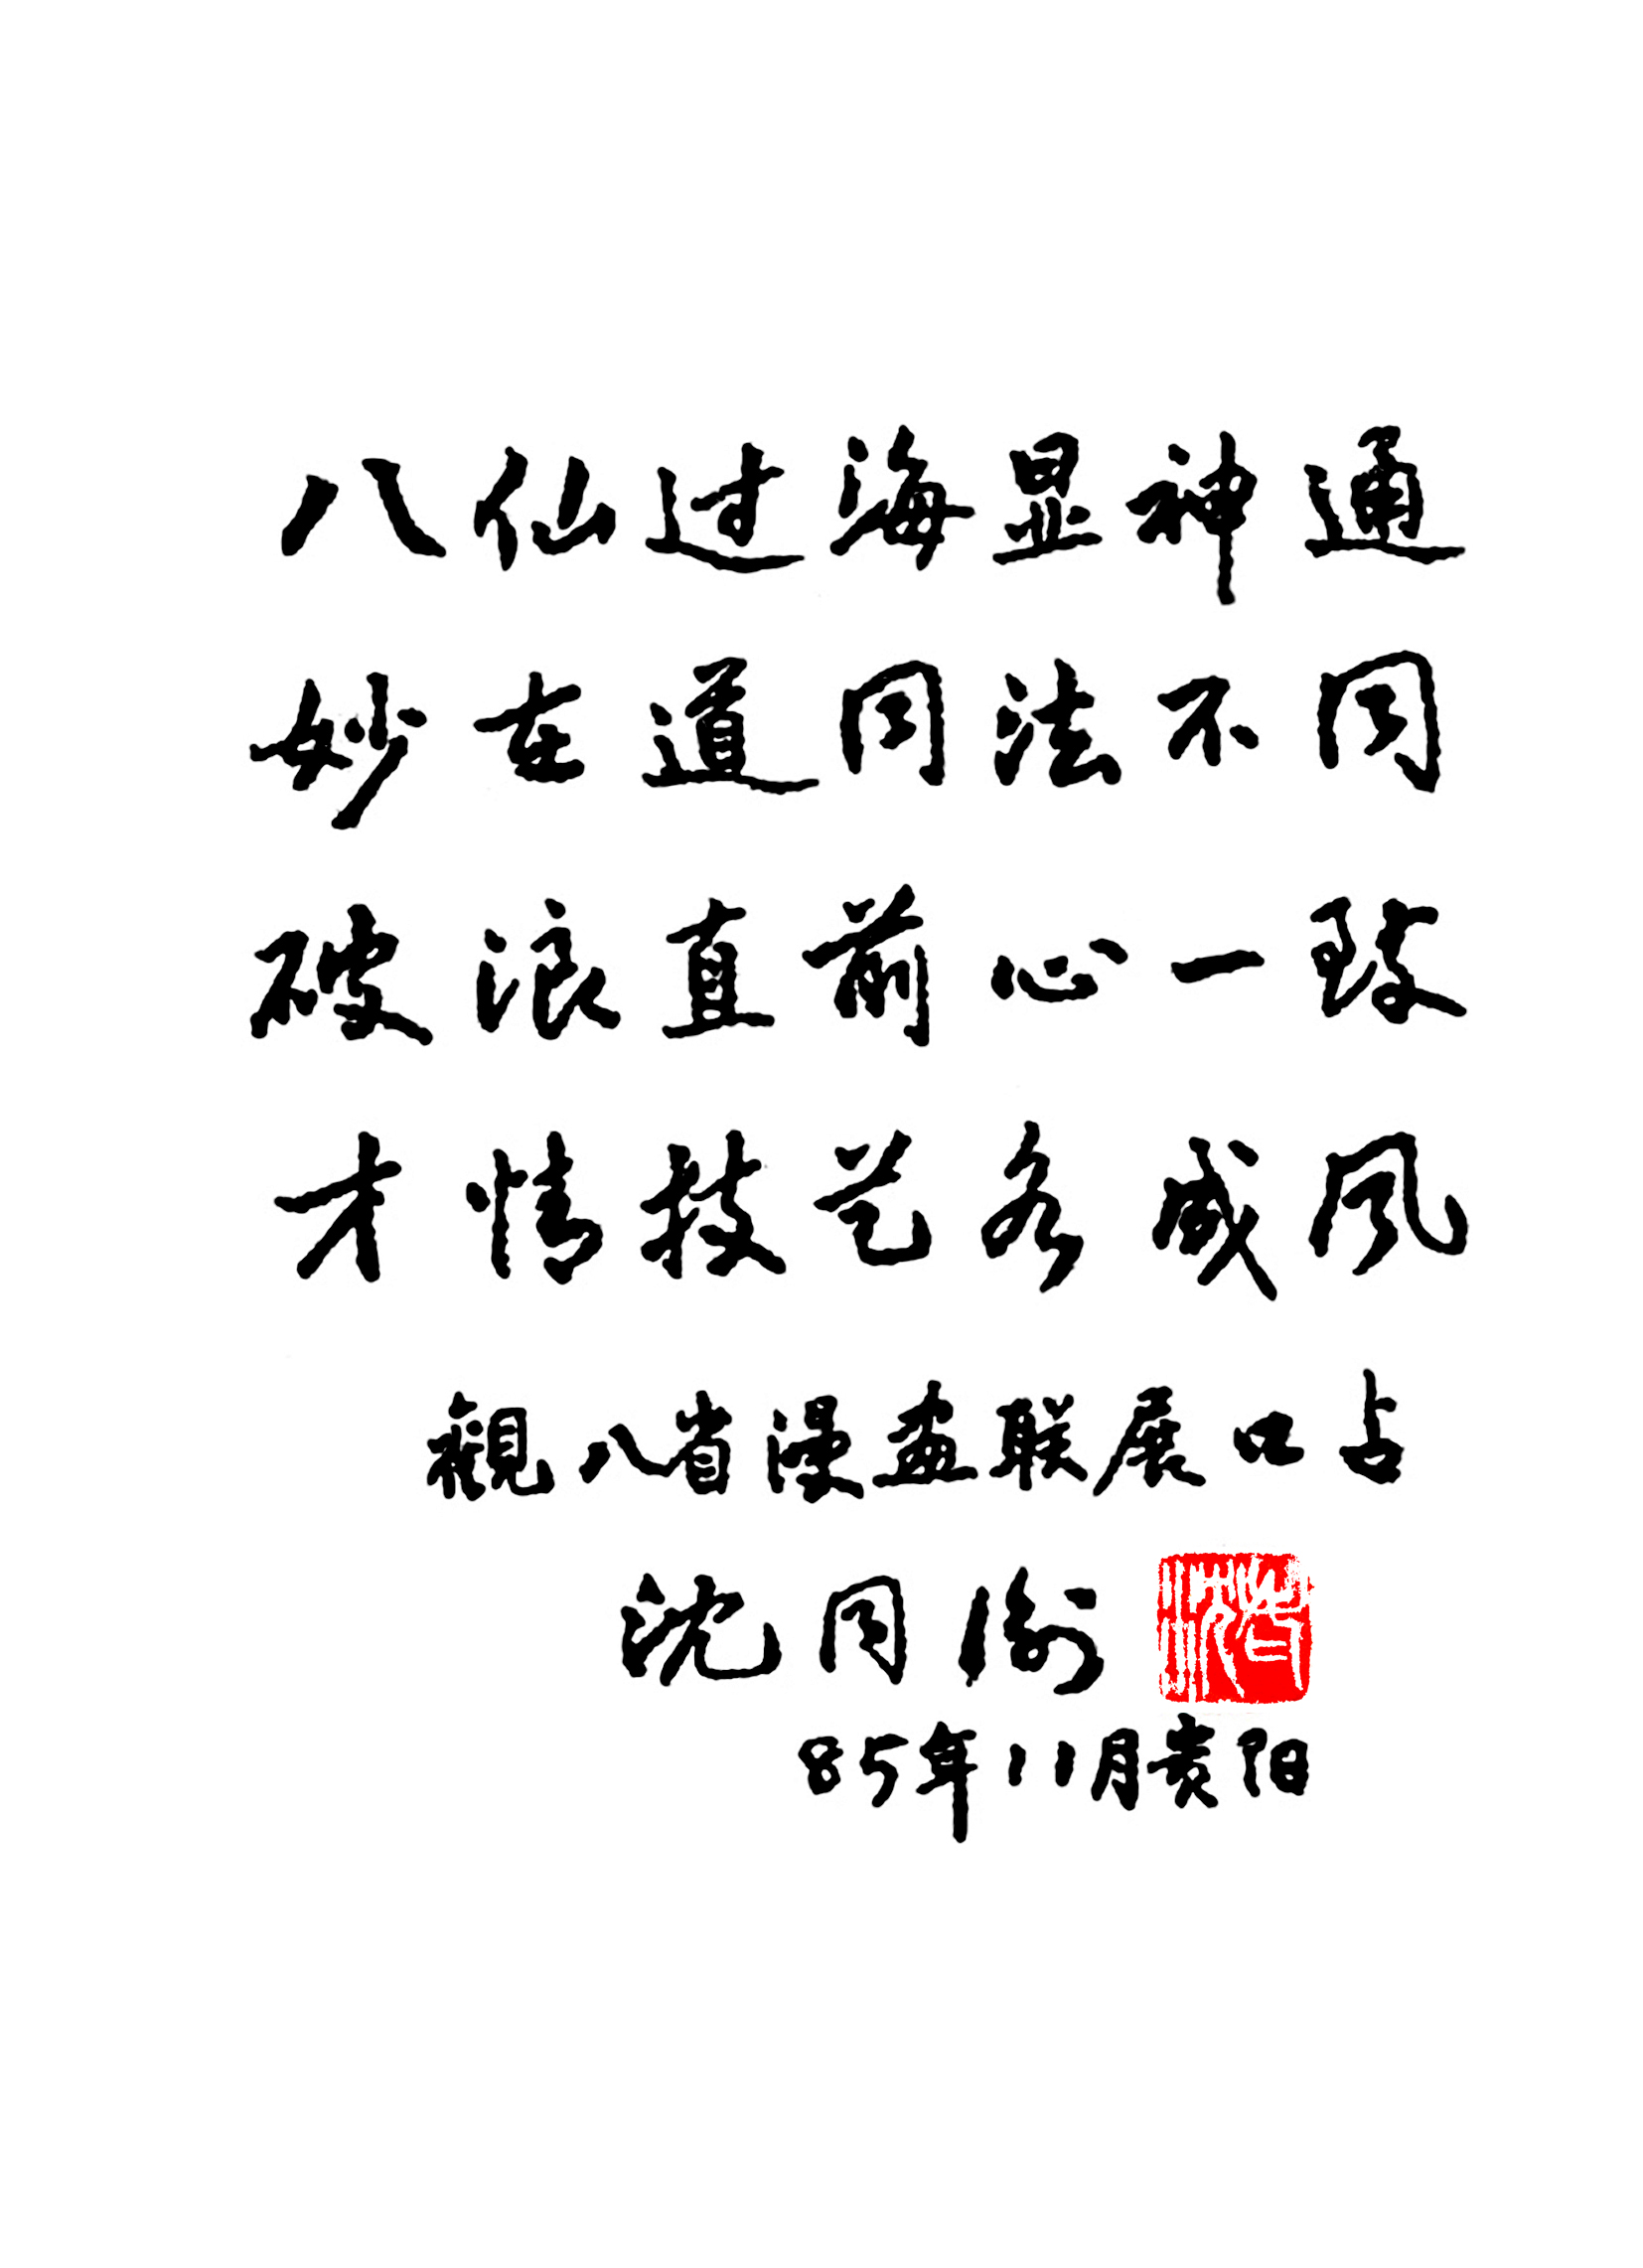 八仙过海显神通
妙在道同法不同
破浪直前心一致
才情技艺各威风
視八省漫画联展口占
沈同衡
85年11月贵阳